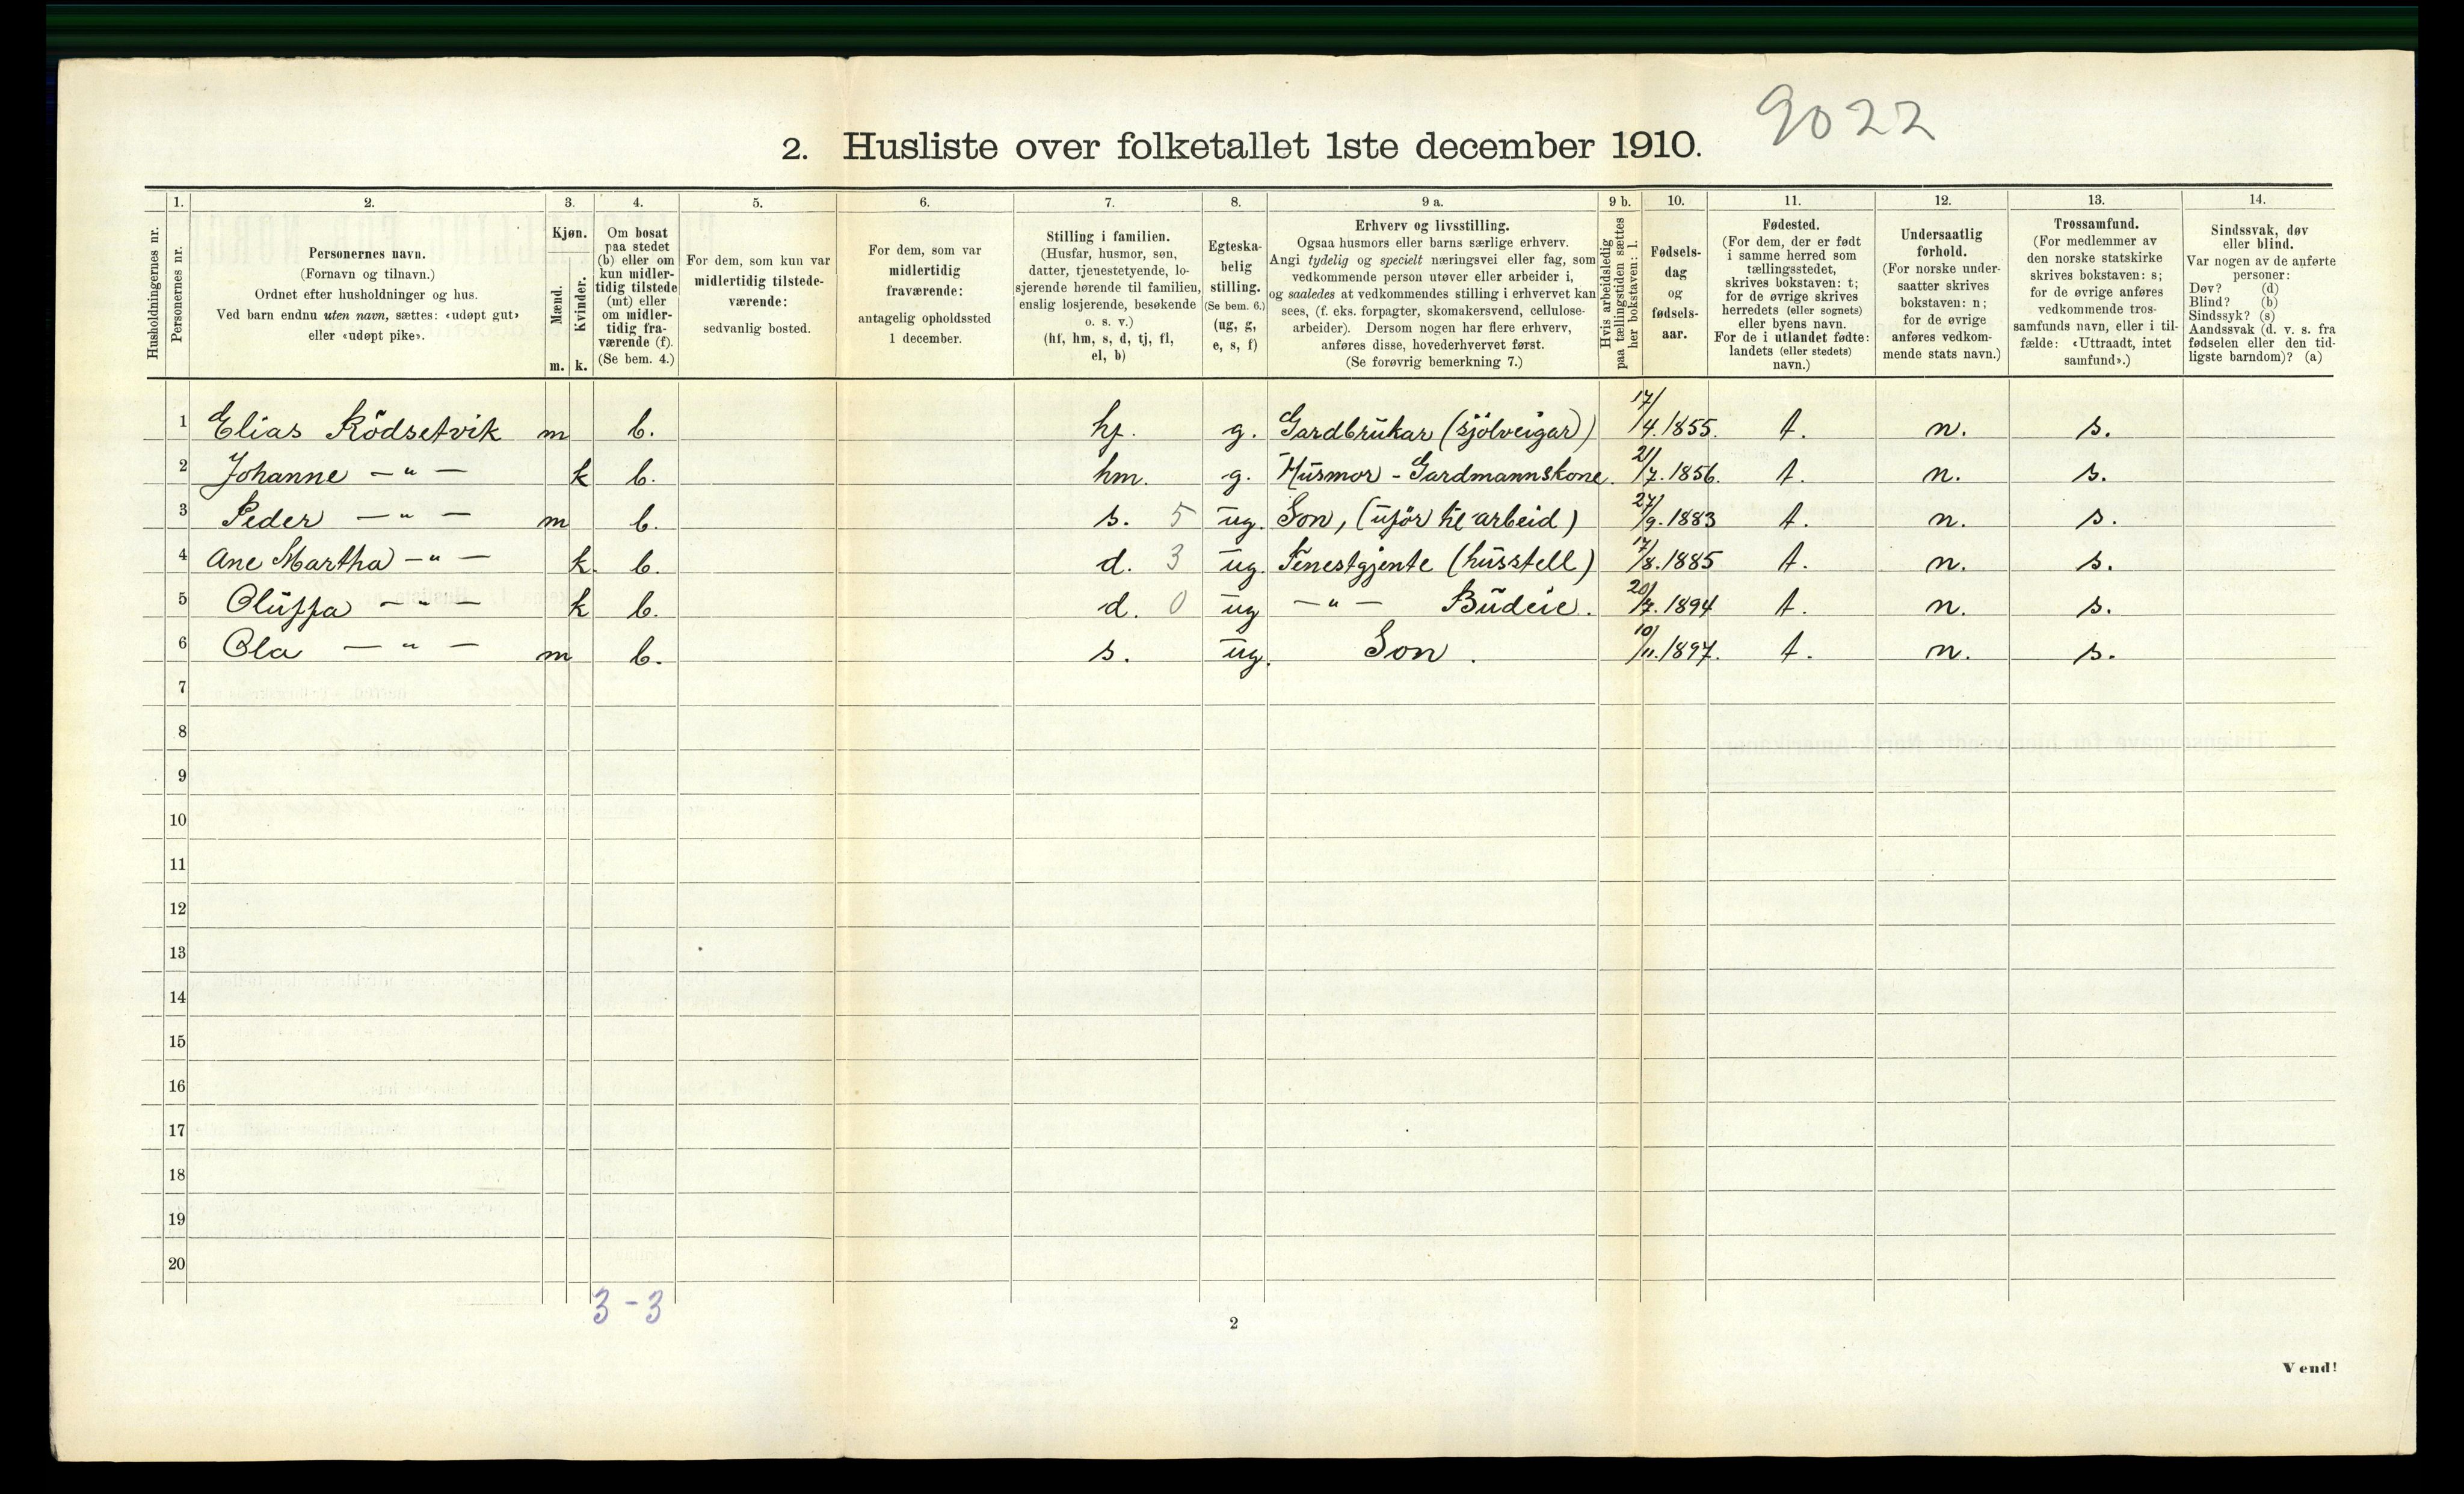 9022
2. Husliste over folketallet 1ste december 1910.
1. 2. 3. 4. 5. 6. 7. 8. 9 a. 9 b. 10. 11. 12. 13. 14.
Husholdningernes nr.
Personernes nr.
Personernes navn.
(Fornavn og tilnavn.)
Ordnet efter husholdninger og hus.
Ved barn endnu uten navn, sættes: «udøpt gut»
eller «udøpt pike».
Kjøn.
Mænd.
Kvinder.
m. k.
Om bosat
paa stedet
(b) eller om
kun midler-
tidig tilstede
(mt) eller
om midler-
tidig fra-
værende (f).
(Se bem. 4.)
For dem, som kun var
midlertidig tilstede-
værende:
sedvanlig bosted.
For dem, som var
midlertidig
fraværende:
antagelig opholdssted
1 december.
Stilling i familien.
(Husfar, husmor, søn,
datter, tjenestetyende, lo-
sjerende hørende til familien,
enslig losjerende, besøkende
o. s. v.)
(hf, hm, s, d, tj, fl,
el, b)
Egteska-
belig
stilling.
(Se bem. 6.)
(ug, g,
e, s, f)
Erhverv og livsstilling.
Ogsaa husmors eller barns særlige erhverv.
Angi tydelig og specielt næringsvei eller fag, som
vedkommende person utøver eller arbeider i,
og saaledes at vedkommendes stilling i erhvervet kan
sees, (f. eks. forpagter, skomakersvend, cellulose-
arbeider). Dersom nogen har flere erhverv,
anføres disse, hovederhvervet først.
(Se forøvrig bemerkning 7.)
Hvis arbeidsledig
paa tællingstiden sættes
her bokstaven: l.
Fødsels-
dag
og
fødsels-
aar.
Fødested.
(For dem, der er født
i samme herred som
tællingsstedet,
skrives bokstaven: t;
for de øvrige skrives
herredets (eller sognets)
eller byens navn.
For de i utlandet fødte:
landets (eller stedets)
navn.)
Undersaatlig
forhold.
(For norske under-
saatter skrives
bokstaven: n;
for de øvrige
anføres vedkom-
mende stats navn.)
Trossamfund.
(For medlemmer av
den norske statskirke
skrives bokstaven: s;
for de øvrige anføres
vedkommende tros-
samfunds navn, eller i til-
fælde: «Uttraadt, intet
samfund».)
Sindssvak, døv
eller blind.
Var nogen av de anførte
personer:
Døv? (d)
Blind? (b)
Sindssyk? (s)
Aandssvak (d. v. s. fra
fødselen eller den tid-
ligste barndom)? (a)
1 Elias Rödsetvik m b. hf. g. Gardbrukar (sjölveigar) 17/4.1855. t. n. s.
2 Johanne — " — k b. hm. g. Husmor - Gardmannskone. 21/7.1856. t. n. s.
3 Peder — " — m b. s. 5 ug. Son, (ufør til arbeid) 27/9.1883 t. n. s.
4 Ane Martha — " — k. b. d. 3 ug. Tenestgjente (husstell) 17/8.1885 t. n. s.
5 Oluffa — " — k b. d. 0 ug — " — Budeie. 20/7.1894 t. n. s.
6 Ola — " — m b. s. ug. Son. 10/11.1897. t. n. s.
7
8
9
10
11
12
13
14
15
16
17
18
19
20
3 - 3
2
Vend!